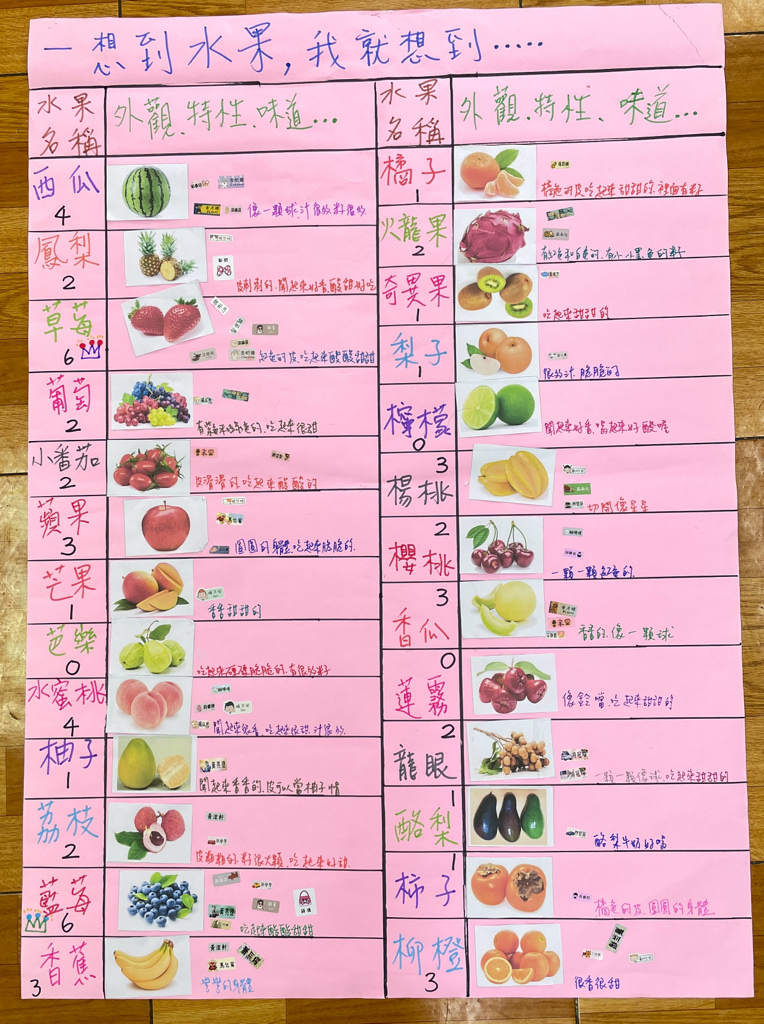 一想到水果，我就想到‧‧‧‧‧
水果名稱
外觀、特性、味道...
西瓜
4
像一顆球，汁很多籽很多
鳳梨
2
皮刺刺的，聞起來好香，酸甜好吃
草莓
6
紅色的皮，吃起來酸酸甜甜
葡萄
2
吃起來很甜
小番茄
2
皮滑滑的，吃起來酸酸的
蘋果
3
圓圓的身體，吃起來脆脆的
芒果
1
香香甜甜的
芭樂
0
吃起來硬硬脆脆的，有很多籽
水蜜桃
4
聞起來很香，吃起來很甜，汁很多
柚子
1
聞起來香香的，皮可以當柚子帽
荔枝
2
皮粗粗的，籽很大顆，吃起來好甜
藍莓
6
吃起來酸酸甜甜
香蕉
3
彎彎的身體
水果名稱
外觀、特性、味道...
橘子
1
橘色的皮，吃起來甜甜的，裡面有籽
火龍果
2
有紅色和白色的，有小小黑色的籽
奇異果
1
吃起來甜甜的
梨子
1
很多汁，脆脆的
檸檬
0
聞起來好香，喝起來好酸喔
楊桃
3
切開像星星
櫻桃
2
一顆一顆紅色的
香瓜
3
香香的，像一顆球
蓮霧
0
像鈴噹，吃起來甜甜的
龍眼
2
一顆一顆像球，吃起來甜甜的
酪梨
1
酪梨牛奶好喝
柿子
1
橘色的皮，圓圓的身體
柳橙
3
很香很甜